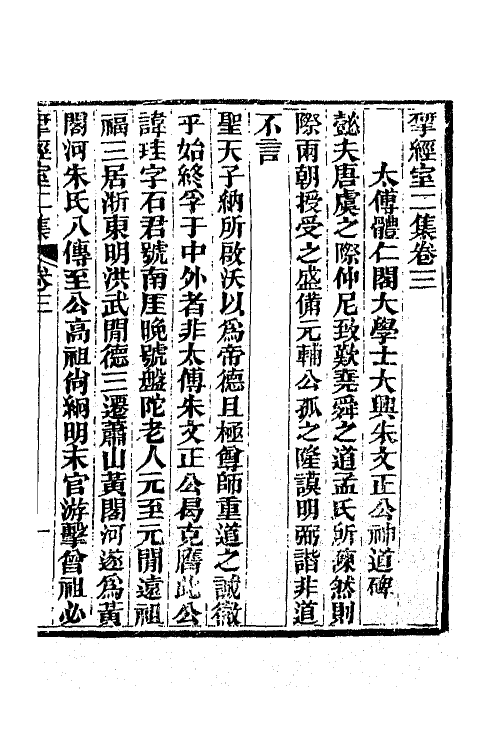 揅經室二集卷三
太傅體仁閣大學士大興朱文正公神道碑
懿夫唐虞之際仲尼致歎堯舜之道孟氏所陳然則
際兩朝授受之盛備元輔公孤之隆謨明弼諧非道
不言
聖天子納所啟沃以爲帝德且極尊師重道之誠徵
乎始終孚于中外者非太傅朱文正公曷克膺此公
諱珪字石君號南厓晚號盤陀老人元至元閒遠祖
福三居浙東明洪武閒德三遷蕭山黃閣河遂爲黃
閣河朱氏八傳至公高祖尙絅明末官游擊曾祖必
揅經室二集 卷三 一